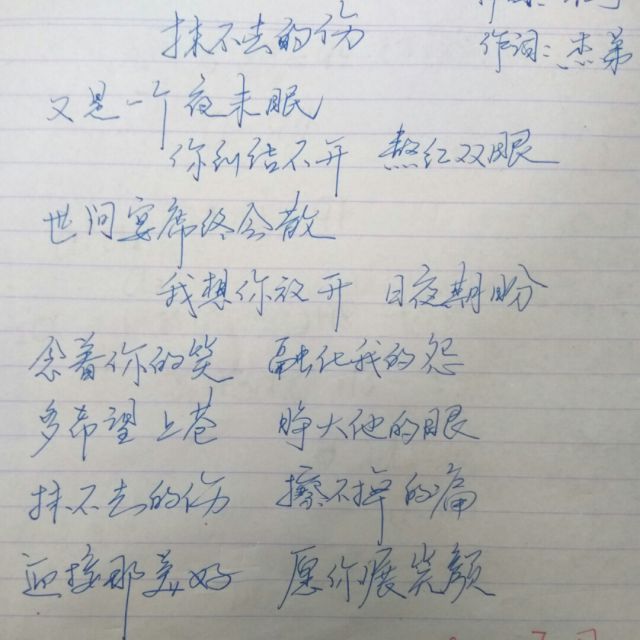 抹不去的伤
作词:杰弟
又是一个夜未眠
你纠结不开 熬红双眼
世间宴席终会散
我想你放开 日夜期盼
念着你的笑 融化我的怨
多希望上苍 睁大他的眼
抹不去的伤 擦不掉的痛
迎接那美好 愿你展笑颜